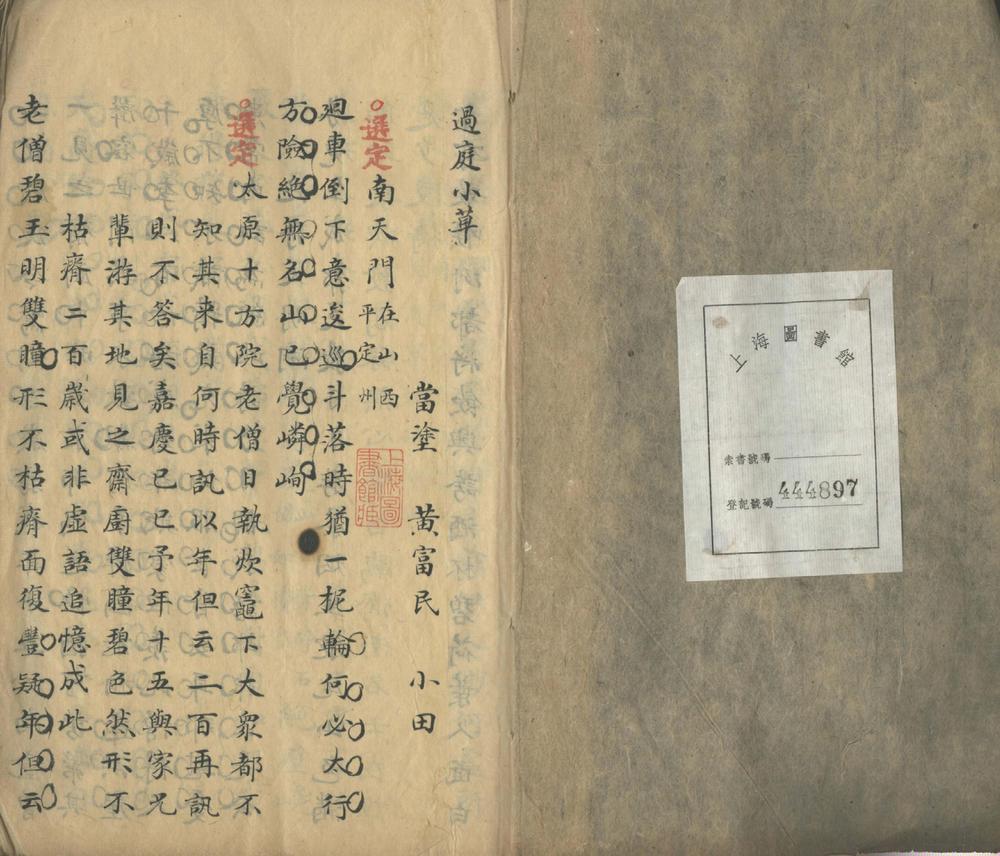 上海圖書館
索書號碼
登記號碼 444897
過庭小草
當塗 黃富民 小田
選定
南天門 在山西平定州
迴車倒下意逡巡斗落時猶一抳輪何必太行
方險絕無名山已覺嶙峋
選定
太原十方院老僧日執炊竈下大衆都不
知其來自何時訊以年但云二百再訊
則不答矣嘉慶己巳予年十五與家兄
輩游其地見之齋廚雙瞳碧色然形不
枯瘠二百歲或非虛語追憶成此
老僧碧玉明雙瞳形不枯瘠面復豐疑年但云
上海圖書館藏